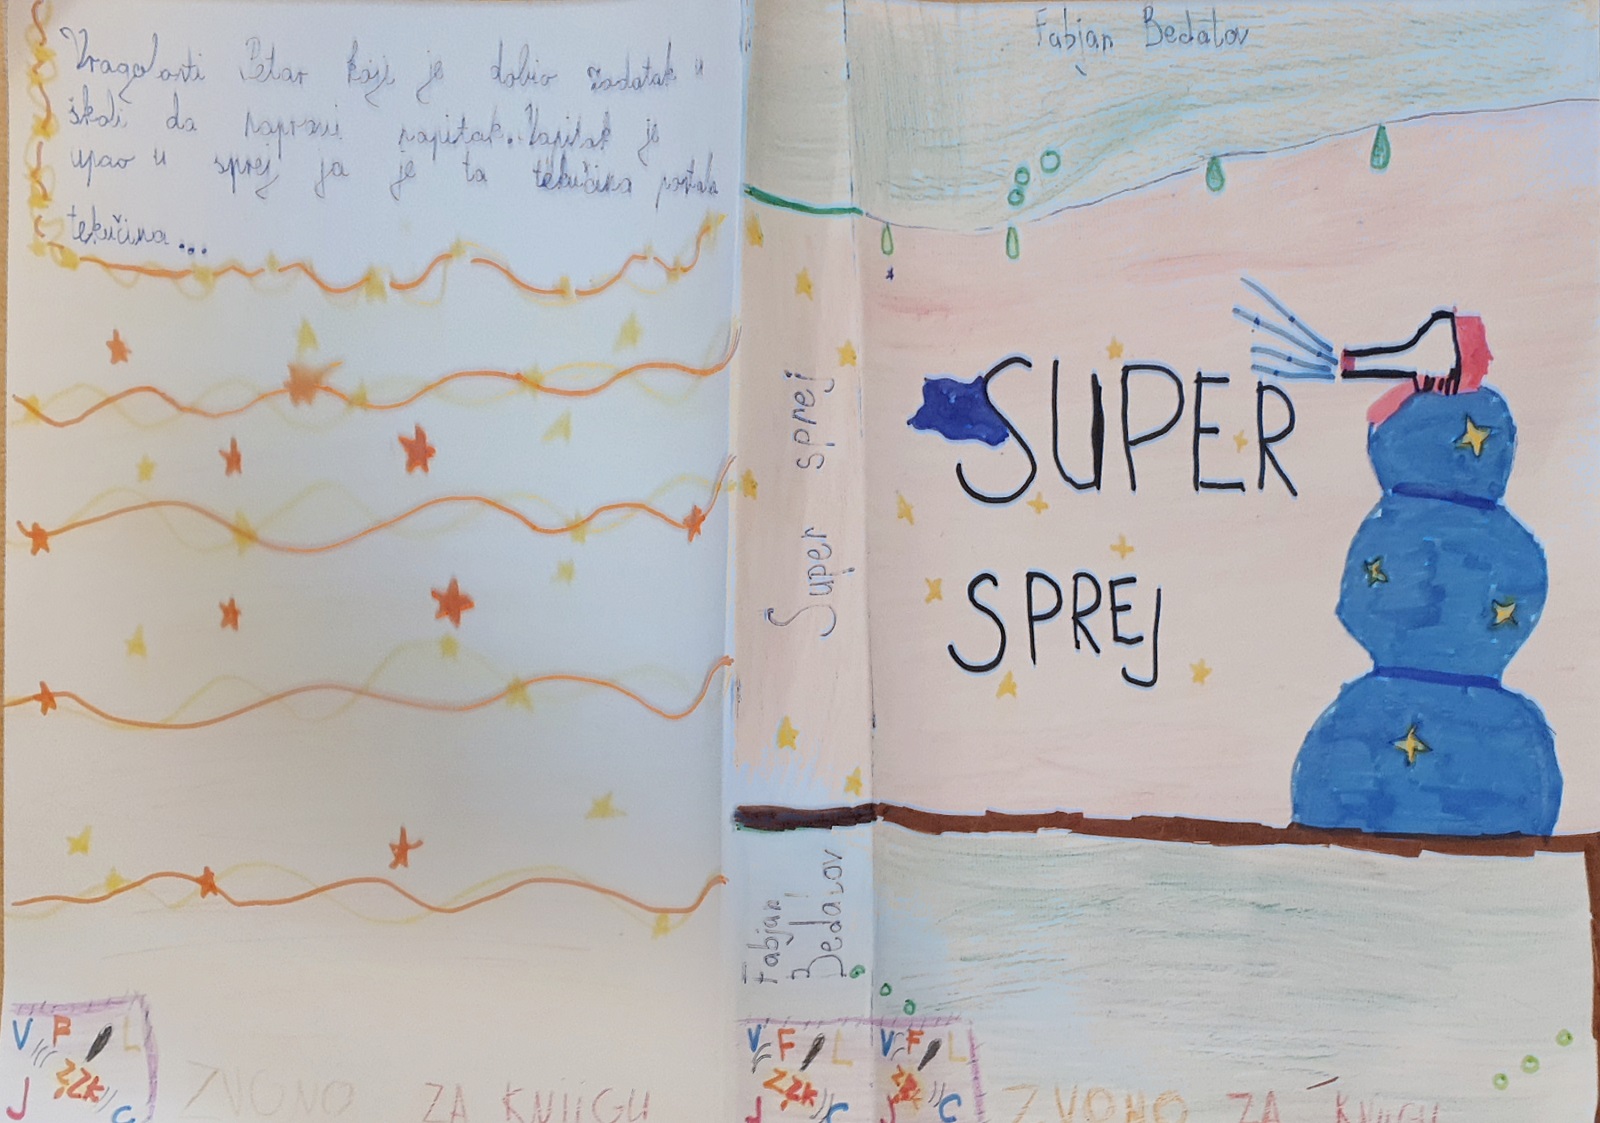 Vragolasti Petar koji je dobio zadatak u
školi da napravi napitak. Napitak je
upao u sprej ja je ta tekučina postala
tekučina...
V F L
ZZK
J C
ZVONO ZA KNJIGU
Super sprej
Fabjan
Bedalov
V F L
ZZK
J C
Fabjan Bedalov
SUPER
SPREJ
V F L
J C
ZVONO ZA KNJIGU